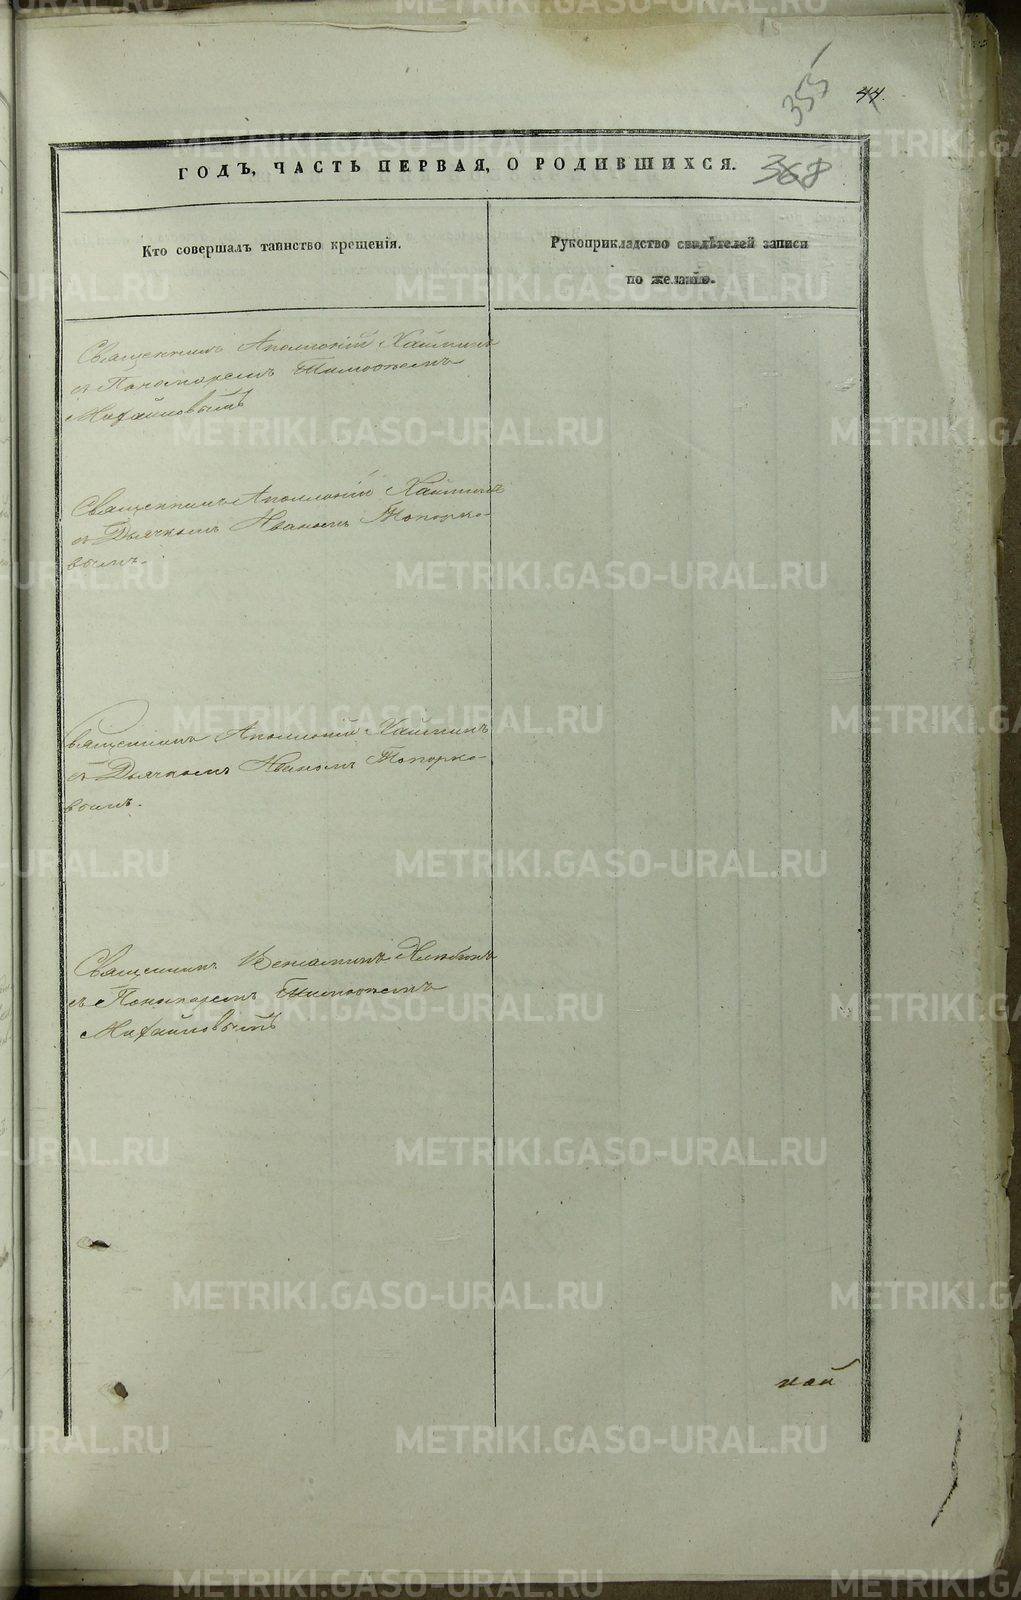 355
44.
ГОДЪ, ЧАСТЬ ПЕРВАЯ, О РОДИВШИХСЯ. 368
Кто совершалъ таинство крещенія.
Рукоприкладство свидѣтелей записи
по желанію.
Священникъ Аполлоній
съ Пономаремъ Тимоѳеемъ
Михайловымъ
Священникъ Аполлоній
съ Дьячкомъ Иваномъ Топорко-
вымъ.
Священникъ Аполлоній
съ Дьячкомъ Иваномъ Топорко-
вымъ.
Священникъ Веніаминъ
съ Пономаремъ Тимоѳеемъ
Михайловымъ
METRIKI.GASO-URAL.RU